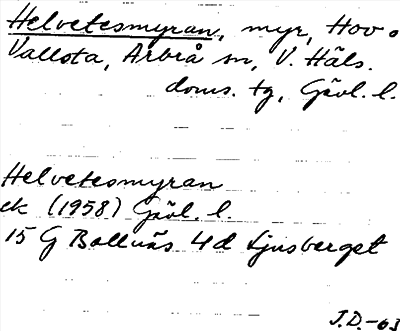 Helvetesmyran, myr, Hov o
Vallsta, Arbrå sn, V. Häls.
doms. tg, Gävl. l.
Helvetesmyran
ek (1958) Gävl. l.
15 G Bollnäs 4d Ljusberget
J.D.-63